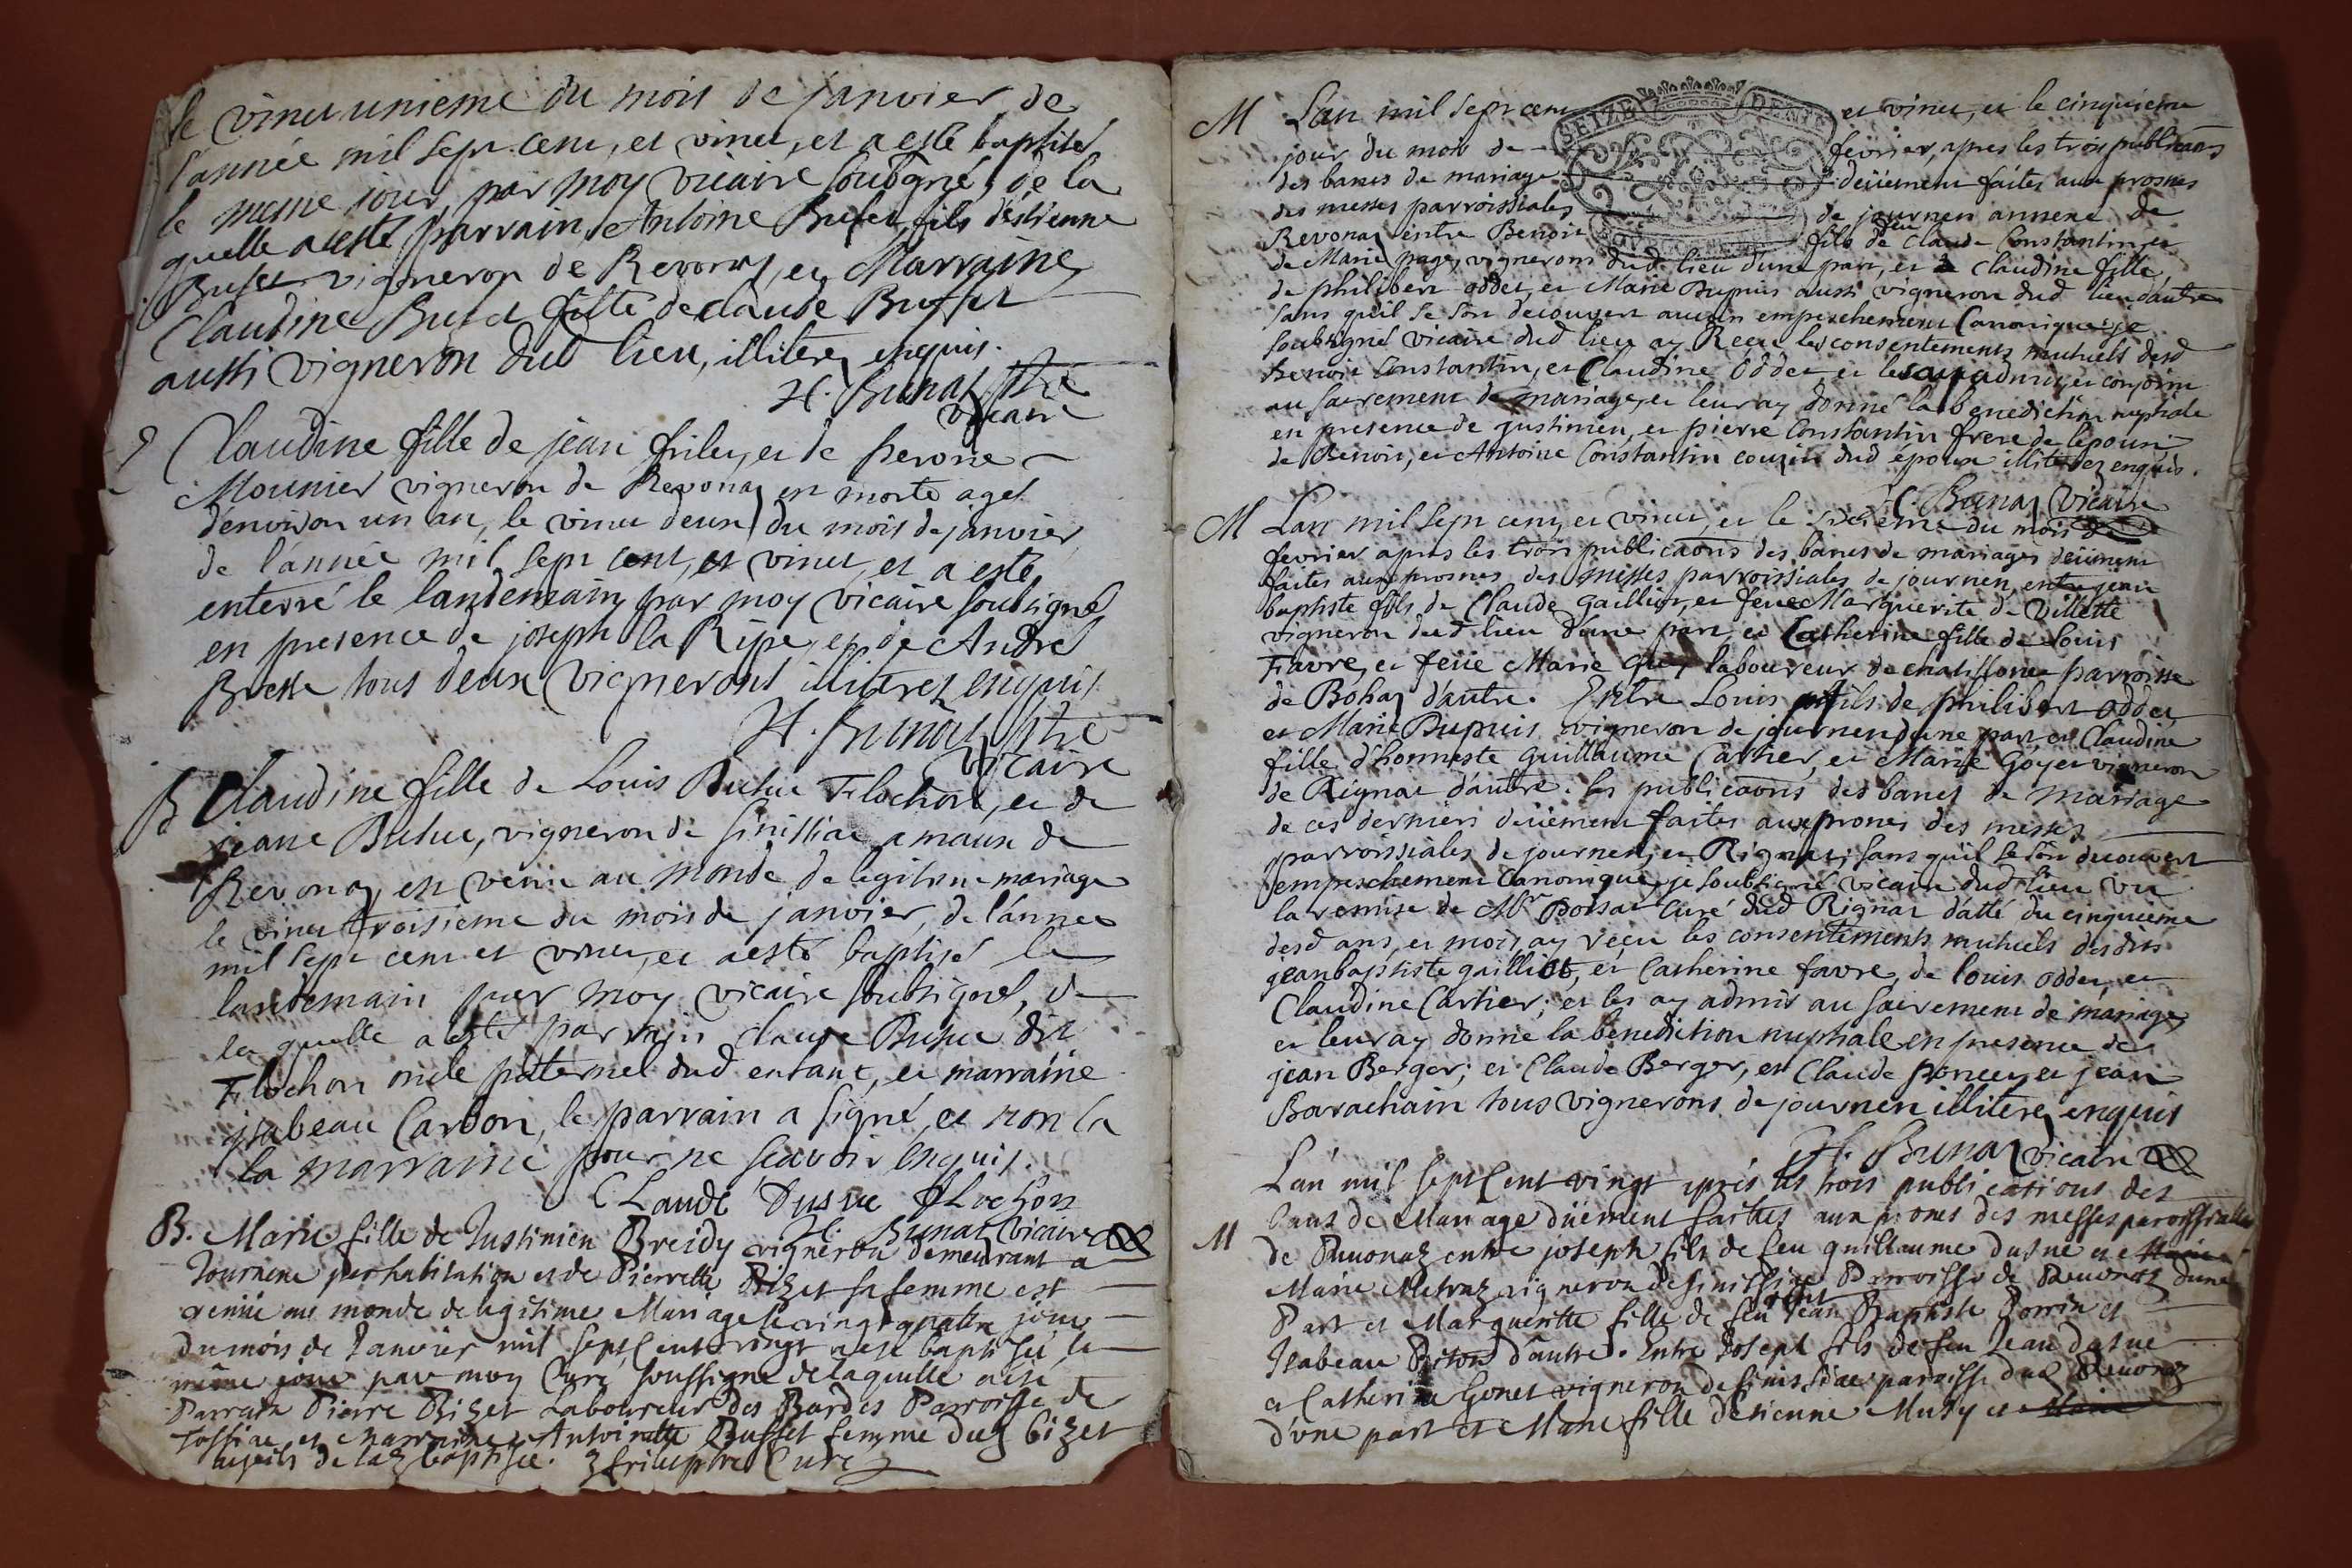 le vinct unieme du mois de janvier de
l'année mil sept cent, et vinct, et a esté baptisé
le meme jour, par moy vicaire soubsigné, de la
quelle a esté parrain Antoine Bufet, fils d'estienne
Bufet vigneron de Revonas, et Marraine
Claudine Bufet fille de claude Buffet
aussi vigneron dud lieu, illiterez enquis.
H. Bunaz ptre
vicaire
Claudine fille de jean frilet, et de perone
Mounier vigneron de Revonaz est morte agée
denviron un an, le vinct deux du mois de janvier
de l'année mil sept cent, et vinct, et a esté
enterré le landemain par moy vicaire soubsigné
en presence de joseph la Ripe, et de André
Bresse tous deux vignerons illiterez enquis
H. Bunaz ptre
vicaire
B Claudine fille de Louis Duhu Flochon, et de
jeane Duhu, vigneron de sinissiac a maux de
Revonaz est venue au monde de legitime mariage
le vinct troisieme du mois de janvier, de l'année
mil sept cent et vinct, et a esté baptisé le
landemain par moy vicaire soubsigné, de
la quelle a esté parrain claude Duhu dit
Flochon oncle paternel dud enfant, et marraine
ysabeau Carbon, le parrain a signé, et non la
la marraine pour ne scavoir enquis.
CLaude Dusue fLochon
H. Bunaz vicaire
B. Marie fille de Justinien Breidy vigneron demeurant a
Journene par habitation et de Pierrette Bizet sa femme est
venüe au monde de legitime Mariage le vingt quatre jour
du mois de Janvier mil sept Cent vingt a esté baptisée le
même jour par moy Curé soussigné de laquelle a été
Parrain Pierre Bizet Laboureur des Bardes Parroisse de
et marraine Antoinette Buffet femme dud bizet
de lad baptisée. frilet ptre Curé
SEIZE DENIE
M Lan mil sept cent et vinct, et le cinquieme
jour du mois de fevrier, apres les trois publicaons
des bancs de mariage deüement faites aux prosnes
des messes parroissiales de journen annexe de
Revonaz entre Benoit fils de feu Claude Constantin, et
de Marie page, vignerons dud lieu d'une part, et Claudine fille
de philibert oddet, et Marie Dupuis aussi vigneron dud lieu d'autre
sans qu'il se soit decouvert aucun empeschement Canonique, je
soubsigné vicaire dud lieu ay Receu les consentements mutuels desd
Benoit Constantin, et Claudine Oddet et les ay admis, et conjoint
au sacrement de mariage, et leur ay donné la benediction nuptiale
en presence de justinien, et pierre Constantin frere de l'epoux,
de Benoit, et Antoine Constantin cousin dud époux illiterez enquis.
H. Bunaz vicaire
M Lan mil sept cent, et vinct, et le sixieme du mois de
fevrier apres les trois publicaons des bancs de mariages deüement
faites aux prosnes des messes parroissiales de journen, entre jean
baptiste fils de Claude gailliot, et feue Marguerite de Villette
vigneron dud lieu d'une part, et Catherine fille de Louis
Favre, et feüe Marie Guy laboureur de chatillonet parroisse
de Bohaz d'autre. Entre Louis fils de philibert oddet
et Marie Dupuis vigneron de journen d'une part et Claudine
fille d'honneste guillaume Cartier, et Marie Goyet vigneron
de Rignat d'autre. les publicaons des bancs de mariage
de ces derniers deüement faites aux prones des messes
parroissiales de journen, et Rignat; sans qu'il se soit decouvert
empeschement Canonique, je soubsigné vicaire dud lieu vu
la remise de Mr Doisat Curé dud Rignat datté du cinquieme
desd ans, et mois ay receu les consentements mutuels desdits
jean baptiste gailliot, et Catherine favre, de louis oddet, et
Claudine Cartier; et les ay admis au sacrement de mariage,
et leur ay donné la benediction nuptiale en presence de
jean Berger; et Claude Berger, et Claude poncet, et jean
Barachain tous vignerons de journen illiterez enquis
H. Bunaz vicaire
L'an mil sept Cent vingt aprés les trois publications des
bans de Mariage düement faittes aux prones des messes paroissialles
M de Revonaz entre joseph fils de feu guillaume dusue et
Marie Metraz vigneron de sinissiac Parroisse de Revonaz d'une
Part et Margueritte fille de feu Jean Baptiste Perrin et
Isabeau d'autre. Entre Joseph fils de feu Jean dusue
et Catherine Gonet vigneron de sinissiac paroisse dud Revonaz
d'une part et Marie fille d'etienne Mudry et